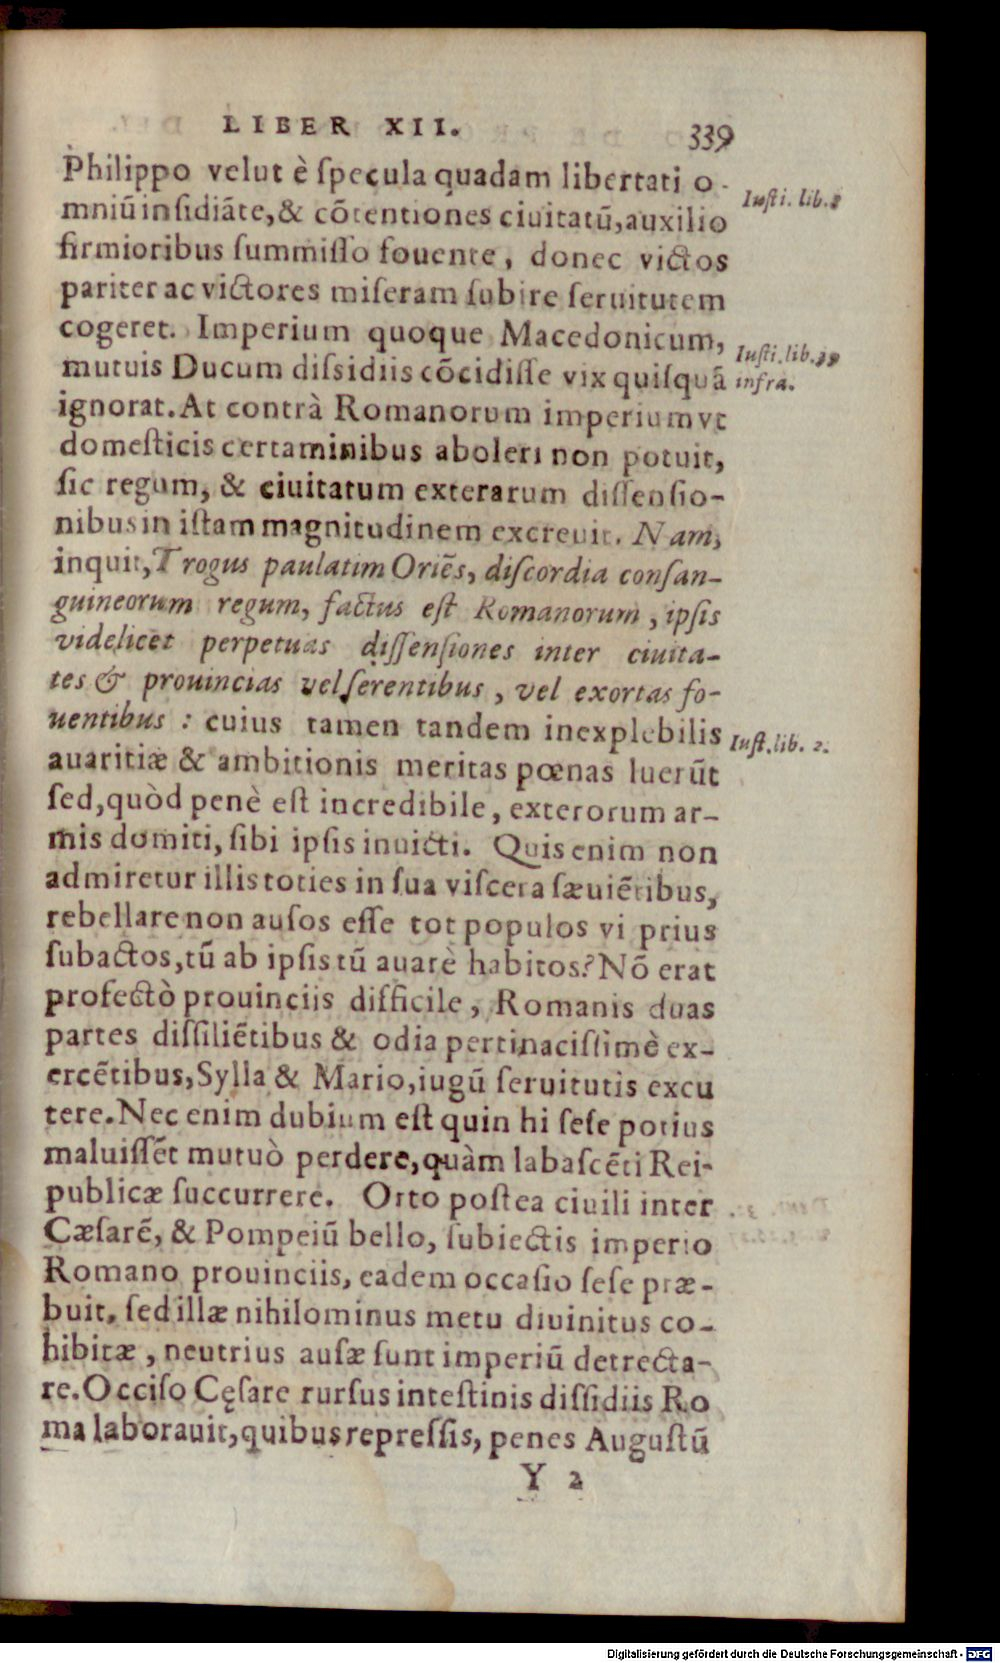 LIBER XII. 339
Philippo velut è ſpecula quadam libertati o-
mniū inſidiāte, & cōtentiones ciuitatū, auxilio
firmioribus ſummiſſo fouente, donec victos
pariter ac victores miſeram ſubire ſeruitutem
cogeret. Imperium quoque Macedonicum,
mutuis Ducum diſsidiis cōcidiſſe vix quiſquā
ignorat. At contrà Romanorum imperium vt
domeſticis certaminibus aboleri non potuit,
ſic regum, & ciuitatum exterarum diſſenſio-
nibus in iſtam magnitudinem excreuit. Nam,
inquit, Trogus paulatim Oriēs, diſcordia conſan-
guineorum regum, factus eſt Romanorum, ipſis
videlicet perpetuas diſſenſiones inter ciuita-
tes & prouincias vel ſerentibus, vel exortas fo-
uentibus: cuius tamen tandem inexplebilis
auaritiæ & ambitionis meritas pœnas luerūt
ſed, quòd penè eſt incredibile, exterorum ar-
mis domiti, ſibi ipſis inuicti. Quis enim non
admiretur illis toties in ſua viſcera ſæuiētibus,
rebellare non auſos eſſe tot populos vi prius
ſubactos, tū ab ipſis tū auarè habitos? Nō erat
profectò prouinciis difficile, Romanis duas
partes diſſiliētibus & odia pertinaciſſimè ex-
ercētibus, Sylla & Mario, iugū ſeruitutis excu
tere. Nec enim dubium eſt quin hi ſeſe potius
maluiſſēt mutuò perdere, quàm labaſcēti Rei-
publicæ ſuccurrere. Orto poſtea ciuili inter
Cæſarē, & Pompeiū bello, ſubiectis imperio
Romano prouinciis, eadem occaſio ſeſe præ-
buit, ſed illæ nihilominus metu diuinitus co-
hibitæ, neutrius auſæ ſunt imperiū detrecta-
re. Occiſo Cęſare rurſus inteſtinis diſſidiis Ro
ma laborauit, quibus repreſſis, penes Auguſtū
Y 2
Iuſti. lib. 8
Iuſti. lib.
infra.
Iuſt. lib. 2.
Digitalisierung gefördert durch die Deutsche Forschungsgemeinschaft - DFG